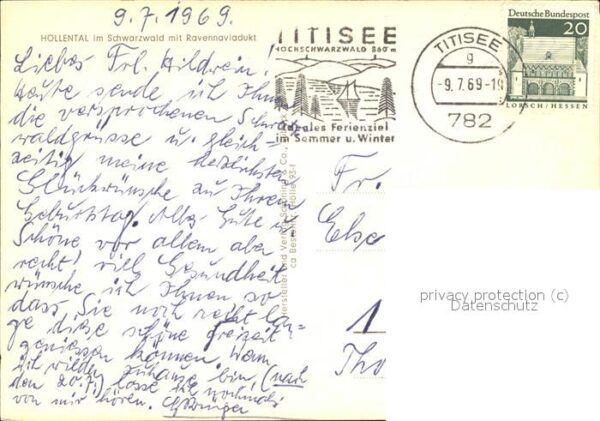 9.7.1969.
HÖLLENTAL im Schwarzwald mit Ravennaviadukt
Liebes Frl. Hildrein,
Heute sende ich Ihnen
die versprochenen Schwarz
waldgrüsse u. gleich-
zeitig meine herzlichsten
Glückwünsche zu Ihrem
Geburtstag. Alles Gute u.
Schöne vor allem aber
recht viell Gesundheit
wünsche ich Ihnen so
dass Sie noch recht lan-
ge diese schöne Freizeit
geniessen können. Wenn
ich wieder zuhause bin (nach
den 20.7.) lasse ich nochmals
von mir hören.
TITISEE
HOCHSCHWARZWALD 860 m
ideales Ferienziel
im Sommer u. Winter
TITISEE
g
-9.7.69-19
782
Deutsche Bundespost
20
LORSCH/HESSEN
Fr.
Else
1
Tho
privacy protection (c)
Datenschutz